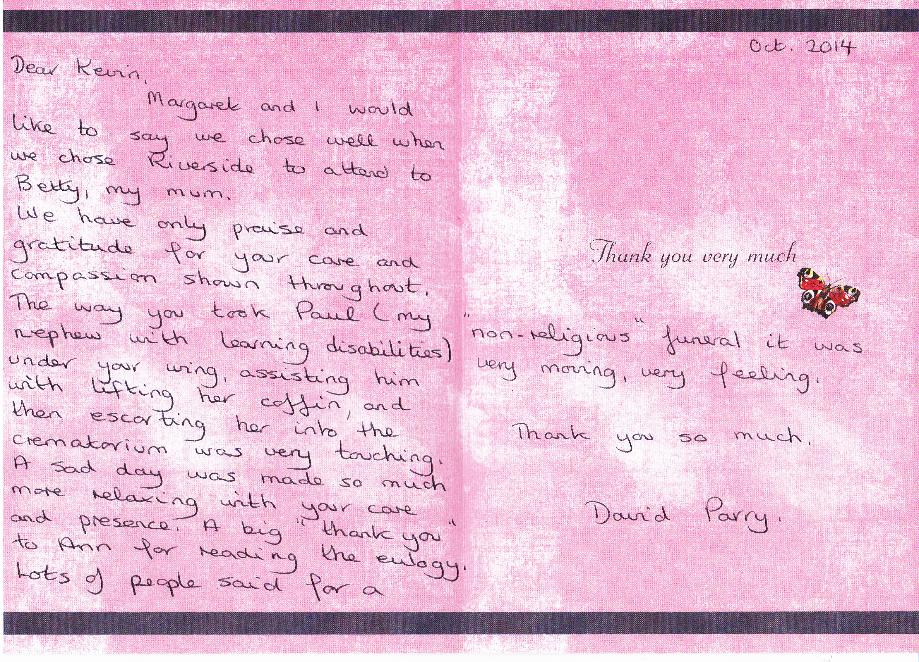 Dear Kevin,
Margaret and I would
like to say we chose well when
we chose Riverside to attend to
Betty, my mum.
We have only praise and
gratitude for your care and
compassion shown throughout.
The way you took Paul (my
nephew with learning disabilities)
under your wing, assisting him
with lifting her coffin, and
then escorting her into the
crematorium was very touching.
A sad day was made so much
more relaxing with your care
and presence. A big "thank you"
to Ann for reading the eulogy.
Lots of people said for a
Oct. 2014
Thank you very much
"non-religious" funeral it was
very moving, very feeling.
Thank you so much.
David Parry.